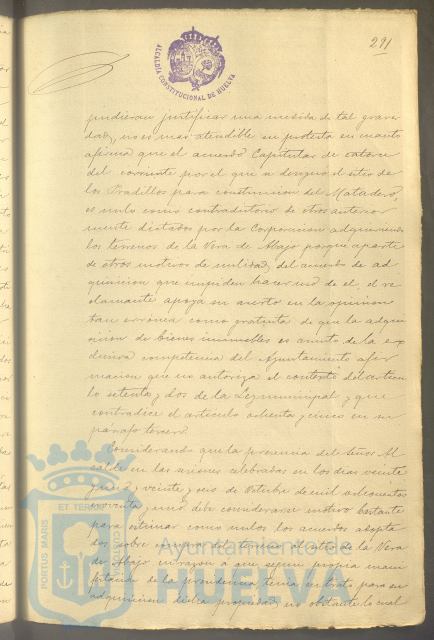 291
ALCALDÍA CONSTITUCIONAL DE HUELVA
pudieran justificar una medida de tal grave
dad, no es mas atendible su protesta en cuanto
afirma que el acuerdo Capitular de catorce
del corriente por el que se designó el sitio de
los Pradillos para construccion del Matadero,
es nulo como contradictorio de otros anterior
mente dictados por la Corporacion adquiriendo
los terrenos de la Vera de Abajo porque aparte
de otros motivos de nulidad del acuerdo de ad
quisicion que impiden hacer uso de el, el re
clamante apoya su aserto en la opinion
tan erronea como gratuita de que la adqui
sicion de bienes inmuebles es asunto de la ex
clusiva competencia del Ayuntamiento afir
macion que no autoriza el contexto del articu
lo setenta y dos de la Ley municipal y que
contradice el articulo ochenta y cinco en su
parrafo tercero.
Considerando que la presencia del Señor Al
calde en las sesiones celebradas en los dias veinte
y veinte y seis de Octubre de mil ochocientos
y uno debe considerarse motivo bastante
para estimar como nulos los acuerdos adopta
dos sobre compra del terreno al sitio de la Vera
de Abajo en razon a que segun propia mani
festacion de la presidencia tenia en trato para su
adquisicion dicha propiedad, no obstante lo cual
ET TERRAE
PORTUS MARIS
CUSTODIA
Ayuntamiento de
HUELVA